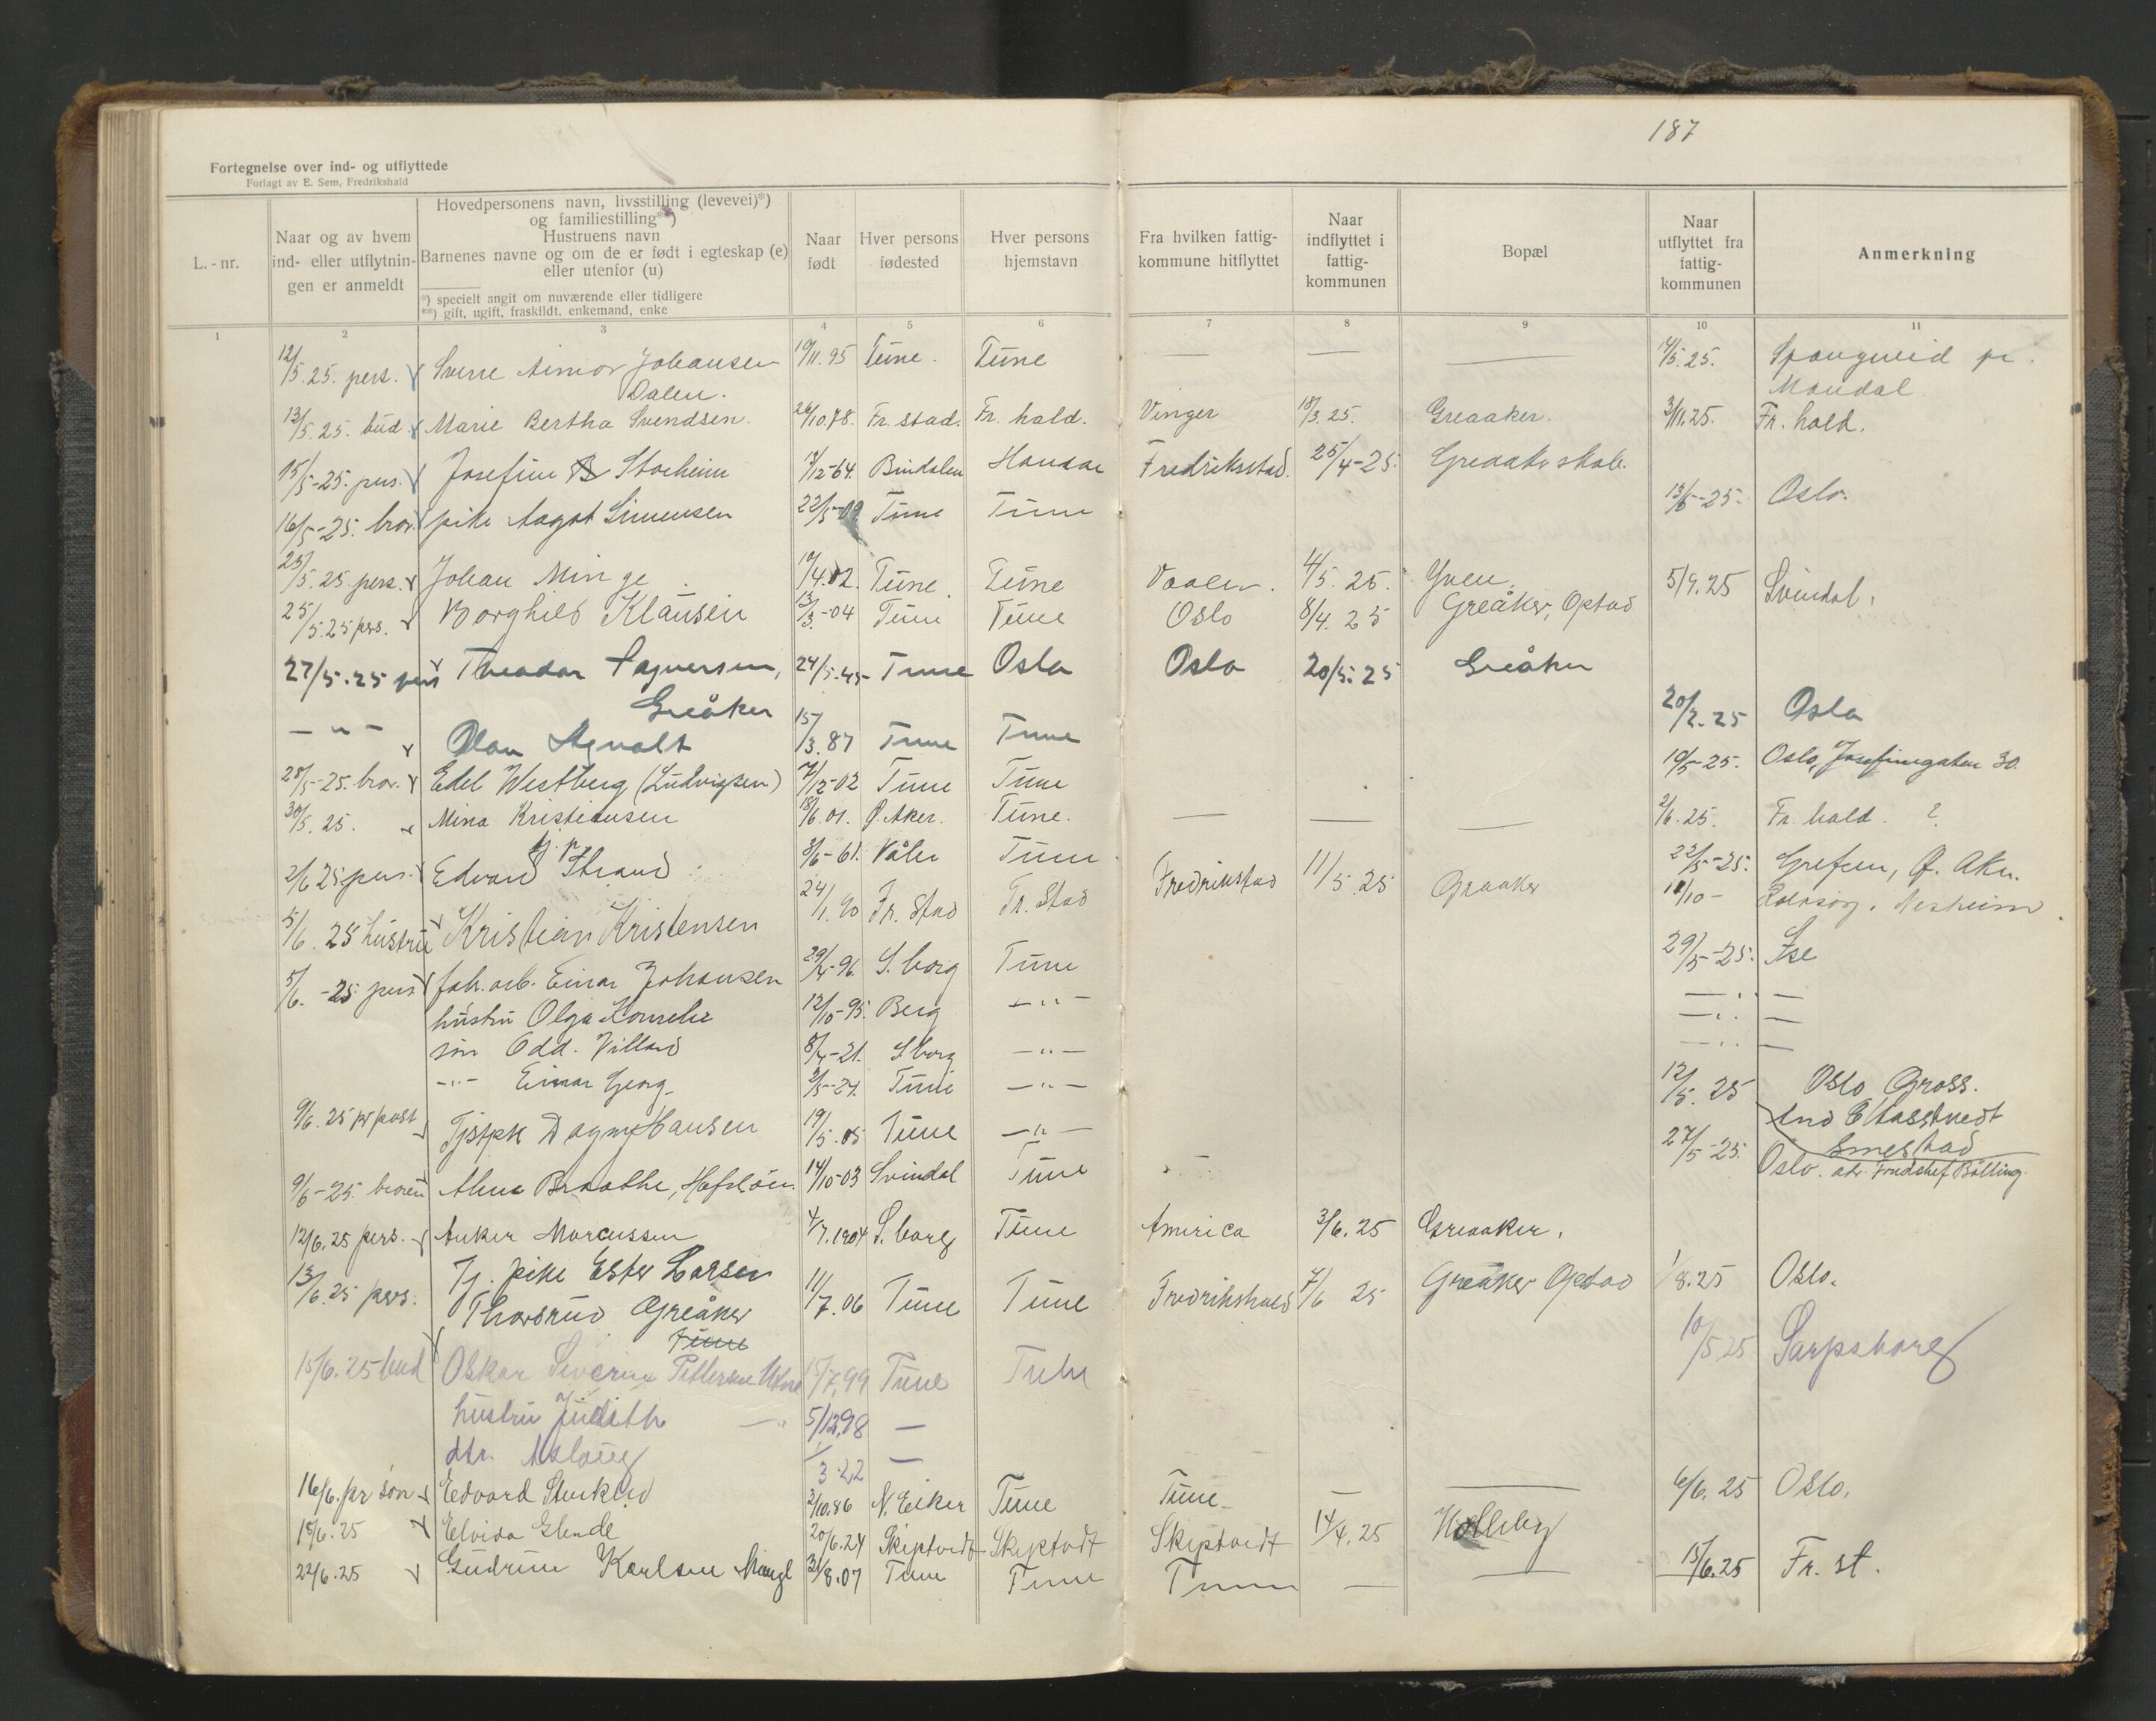 187
Fortegnelse over ind- og utflyttede
Forlagt av E. Sem, Fredrikshald
L.-nr.
Naar og av hvem
ind- eller utflytnin-
gen er anmeldt
Hovedpersonens navn, livsstilling (levevei)*)
og familiestilling**)
Hustruens navn
Barnenes navne og om de er født i egteskap (e)
eller utenfor (u)
*) specielt angit om nuværende eller tidligere
**) gift, ugift, fraskildt, enkemand, enke
Naar
født
Hver persons
fødested
Hver persons
hjemstavn
Fra hvilken fattig-
kommune hitflyttet
Naar
indflyttet i
fattig-
kommunen
Bopæl
Naar
utflyttet fra
fattig-
kommunen
Anmerkning
1 2 3 4 5 6 7 8 9 10 11
12/5.25. pers. Sverre Johansen 19/11.95 Tune. Tune — — — 14/5.25. pr.
Dalen. Mandal
13/5.25. bud. Marie Bertha Svendsen. 26/10.78. Fr. stad. Fr. hald. Vinger 18/3.25. Greaaker. 3/11.25. Fr. hald.
15/5-25. pers. Josefine Storheim /12-64. Bindalen Fredriksstad. 25/4-25.
16/5-25. bror. pike Aagot Simensen 22/5-09 Tune Tune 13/5-25. Oslo.
23/5.25. pers. Johan Minge 19/4.02. Tune. Tune Vaaler. 4/5.25. Yven. 5/9.25 Svindal.
25/5.25 pers. Borghild Klausen 13/3.-04 Tune Tune Oslo 8/4.25 Greåker, Opstad
27/5.25 pers Theodor 24/5.45 Tune Oslo Oslo 20/5.25 Greåker
Greåker
— " — Olav 15/3.87 Tune Tune 20/2.25 Oslo
28/5-25. bror. Edel Westberg (Ludvigsen) 7/12-02 Tune Tune 19/5-25. Oslo, Josefinegaten 30.
30/5.25. Mina Kristiansen 18/6.01. Ø. Aker. Tune. — — — 2/6.25. Fr. hald. ?
2/6 25 pers. Edvard Strand 3/6-61. Våler Tune 22/5-25. Grefsen, Ø. Aker.
5/6.25 hustru Kristian Kristensen 24/1.90 Fr. Stad Fr. Stad Fredrikstad 11/5 25 Graaker 11/10-
5/6.-25 pers fabr. arb. Einar Johansen 29/4-96. S. borg Tune 29/5-25. Ise
hustru Olga 12/10-95. Berg — " — — " —
søn Odd. Villard 8/4-21. S. borg — " — — " —
— " — Einar Georg 2/5-24. Tune — " — — " —
9/6.25 pr post Tjstpk Dagny Hansen 19/5.05 Tune — " — 12/5.25 Oslo Gross.
Smestad
9/6-25. broren Alma Braathe, Hafslön 14/10-03 Svindal Tune 27/5-25. Oslo.
12/6.25 pers. Anker Marcussen 4/7.1904 S. borg Tune America 3/6.25 Greaaker.
13/6.25 pers. Tj. pike Ester Larsen 11/7.06 Tune Tune Fredrikshald 7/6 25 Greåker Opstad 1/8.25 Oslo.
Thorsrud Greåker
Tune
15/6.25 bud Oskar Severin Pettersen 15/7.99 Tune Tune 10/5.25 Sarpsborg
hustru Judith — " 5/12.98 —
dtr. Aslaug /3.22 —
16/6. pr søn Edvard 2/10.86 N. Eiker Tune Tune — — 6/6.25 Oslo.
18/6.25 Elvida Glende 20/6.24 Skiptvedt Skiptvedt Skiptvedt 14/4.25
22/6.25 Gudrun Karlsen 31/8.07 Tune Tune Tune — — 15/6.25 Fr. st.